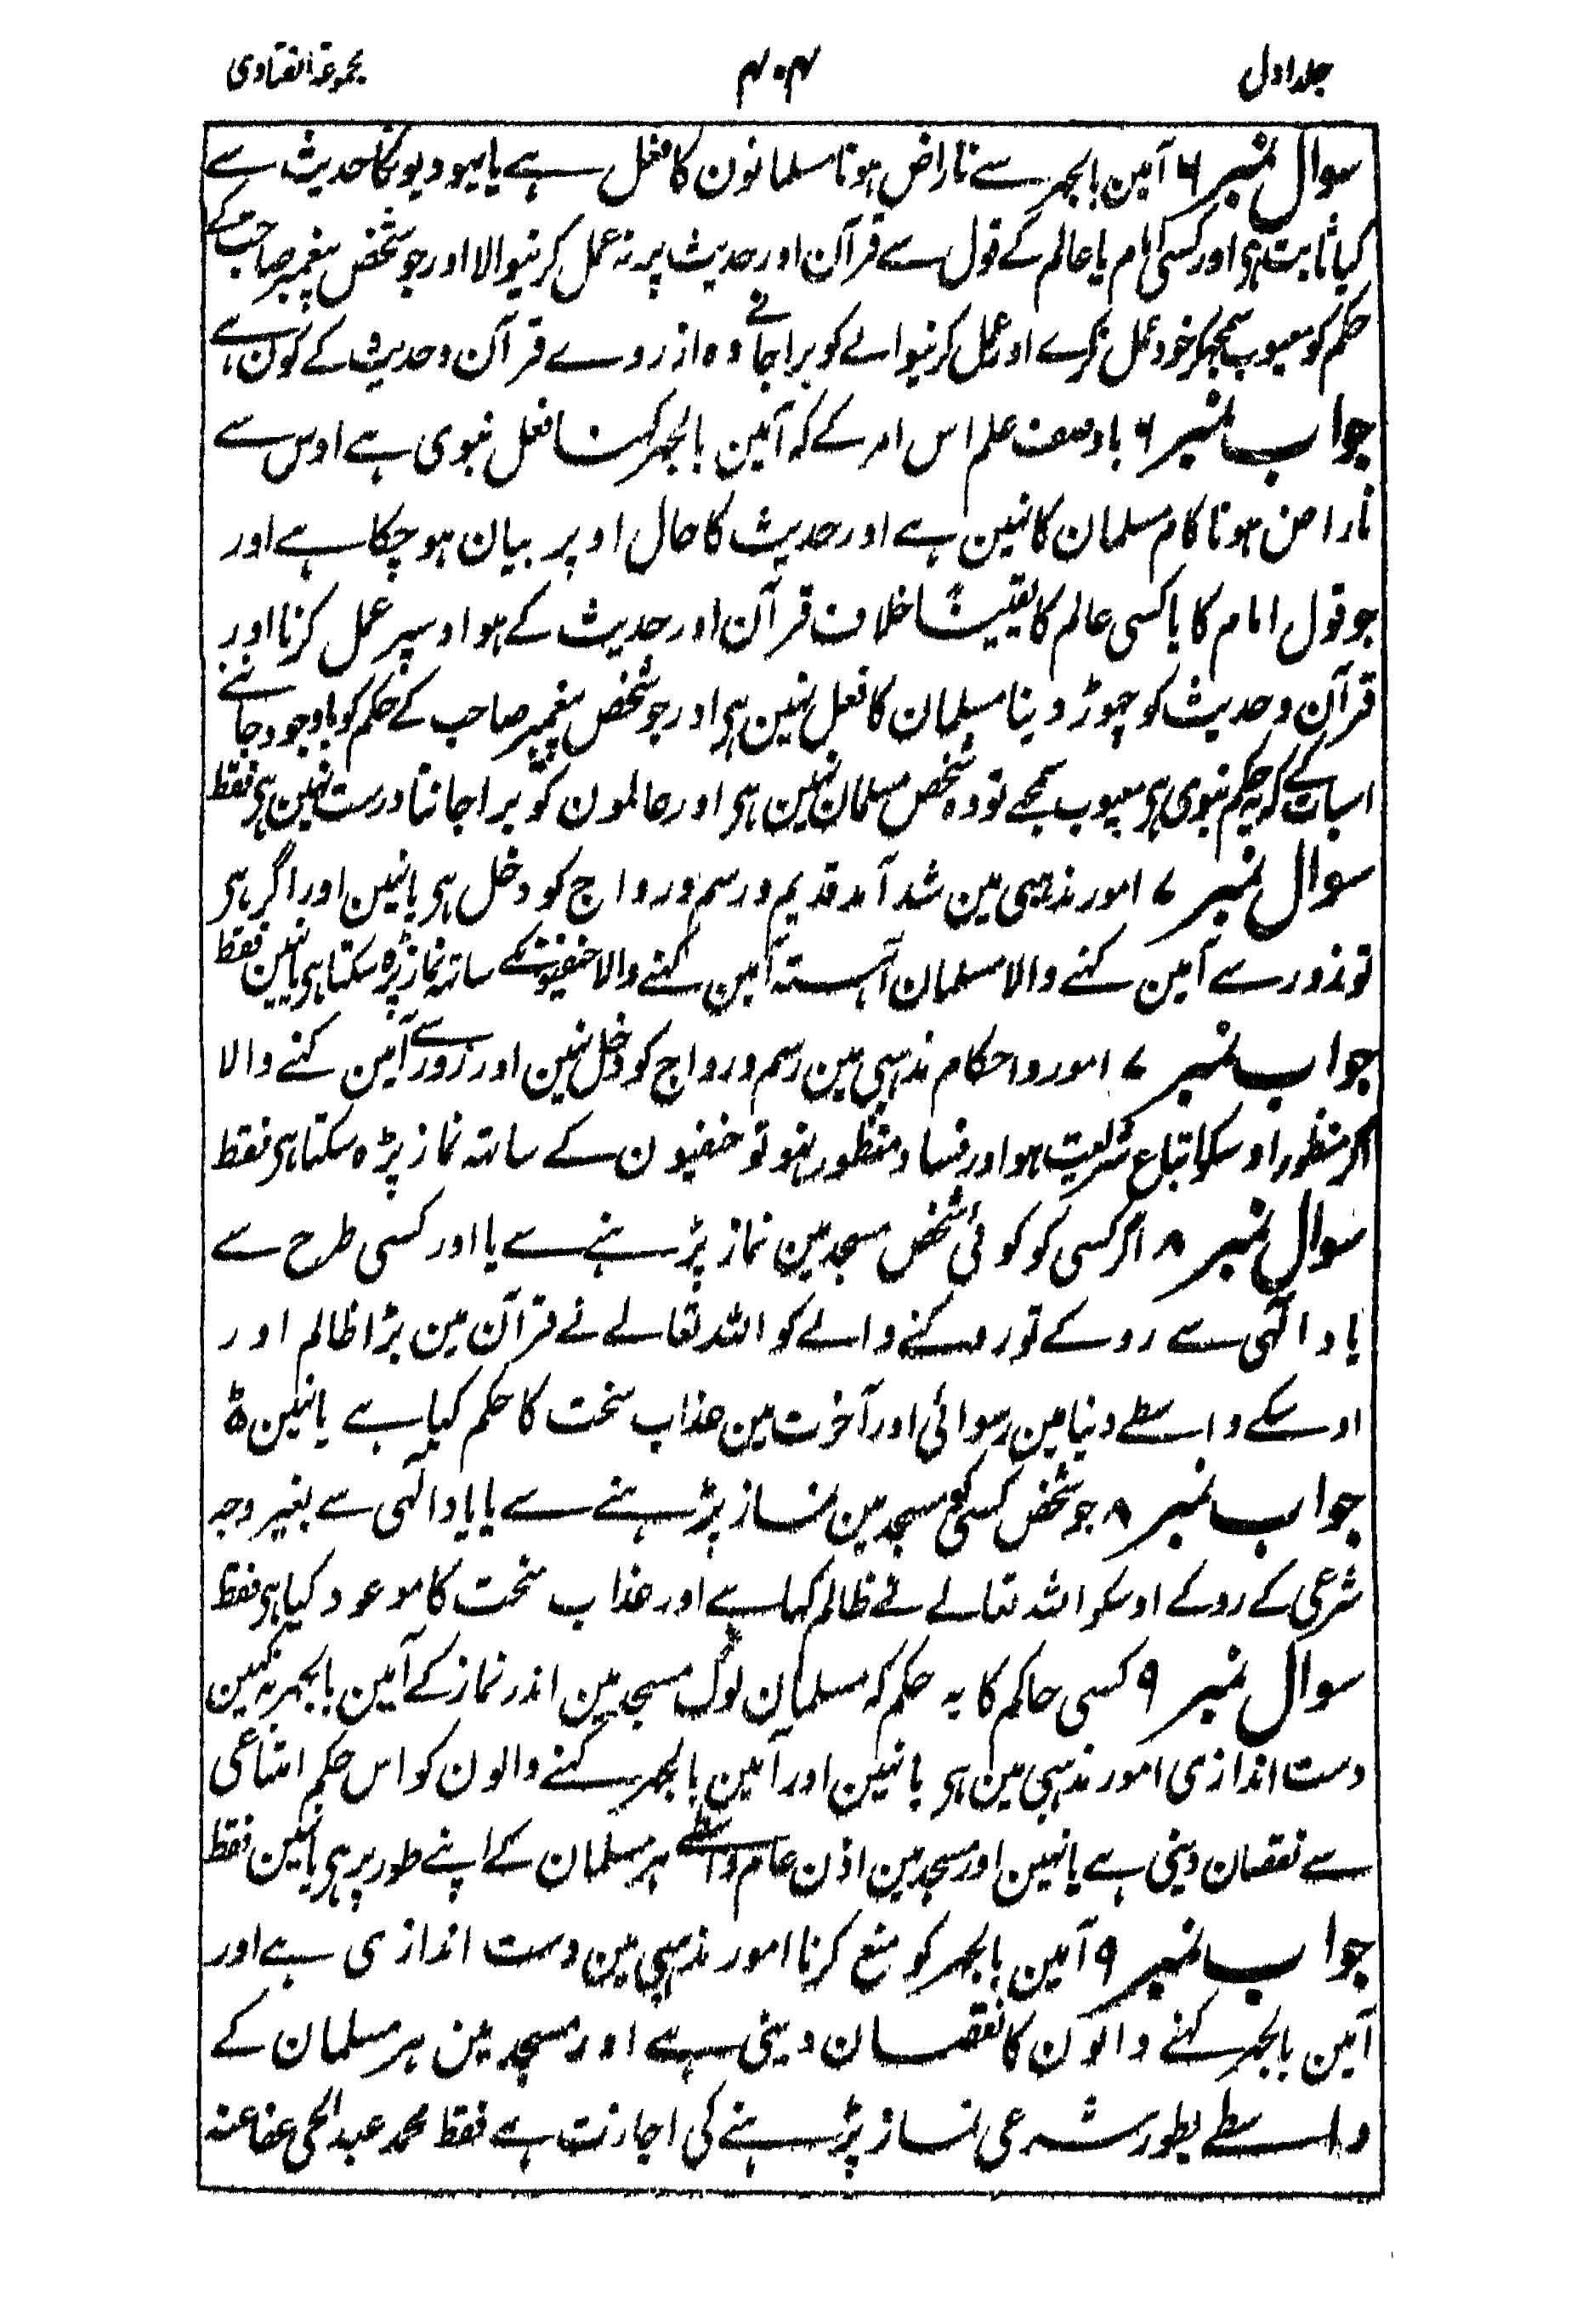 جلد اول ۴۰۴ مجموعۃ الفتاوی
سوال نمبر ۶ آمین بالجہر سے ناراض ہونا مسلمانون کا فعل ہے یا یہودیونکا حدیث سے
کیا ثابت ہی اور کسی امام یا عالم کے قول سے قرآن اور حدیث پر نہ عمل کرنیوالا اور جو شخص پیغمبر صاحب کے
حکم کو معیوب سمجھکر خود عمل نکرے اور عمل کرنیوالے کو برا جانے وہ از روے قرآن و حدیث کے کون ہے
جواب نمبر ۶ باوصف علم اس امر کے کہ آمین بالجہر کہنا فعل نبوی ہے اوس سے
ناراض ہونا کام مسلمان کا نہین ہے اور حدیث کا حال اوپر بیان ہو چکا ہے اور
جو قول امام کا یا کسی عالم کا یقیناً خلاف قرآن اور حدیث کے ہو اوسپر عمل کرنا اور
قرآن و حدیث کو چھوڑ دینا مسلمان کا فعل نہین ہی اور جو شخص پیغمبر صاحب کے حکم کو باوجود جاننے
اسبات کے کہ یہ حکم نبوی ہی معیوب سمجھے تو وہ شخص مسلمان نہین ہی اور عالمون کو برا جاننا درست نہین ہی فقط
سوال نمبر ۷ امور مذہبی مین شد آمد قدیم و رسم و رواج کو دخل ہی یا نہین اور اگر ہی
تو زور سے آمین کہنے والا مسلمان آہستہ آمین کہنے والا حنفیونکے ساتہ نماز پڑہ سکتا ہی یا نہین فقط
جواب نمبر ۷ امور و احکام مذہبی مین رسم و رواج کو دخل نہین اور زور سے آمین کہنے والا
اگر منظور اوسکو اتباع شریعت ہو اور فساد منظور نہو تو حنفیون کے ساتہ نماز پڑہ سکتا ہی فقط
سوال نمبر ۸ اگر کسی کو کوئی شخص مسجد مین نماز پڑہنے سے یا اور کسی طرح سے
یاد الٰہی سے روکے تو روکنے والے کو اللہ تعالے نے قرآن مین بڑا ظالم اور
اوسکے واسطے دنیا مین رسوائی اور آخرت مین عذاب سخت کا حکم کیا ہے یا نہین
جواب نمبر ۸ جو شخص کسی کو مسجد مین نماز پڑہنے سے یا یاد الٰہی سے بغیر وجہ
شرعی کے روکے اوسکو اللہ تعالے نے ظالم کہا ہے اور عذاب سخت کا موعود کیا ہی فقط
سوال نمبر ۹ کسی حاکم کا یہ حکم کہ مسلمان لوگ مسجد مین اندر نماز کے آمین بالجہر نہ کہین
دست اندازی امور مذہبی مین ہی یا نہین اور آمین بالجہر کہنے والون کو اس حکم امتناعی
سے نقصان دینی ہے یا نہین اور مسجد مین اذن عام واسطے ہر مسلمان کے اپنے طور پر ہی یا نہین فقط
جواب نمبر ۹ آمین بالجہر کو منع کرنا امور مذہبی مین دست اندازی ہے اور
آمین بالجہر کہنے والون کا نقصان دینی ہے اور مسجد مین ہر مسلمان کے
واسطے بطور شرعی نماز پڑہنے کی اجازت ہے فقط محمد عبد الحی عفا عنہ